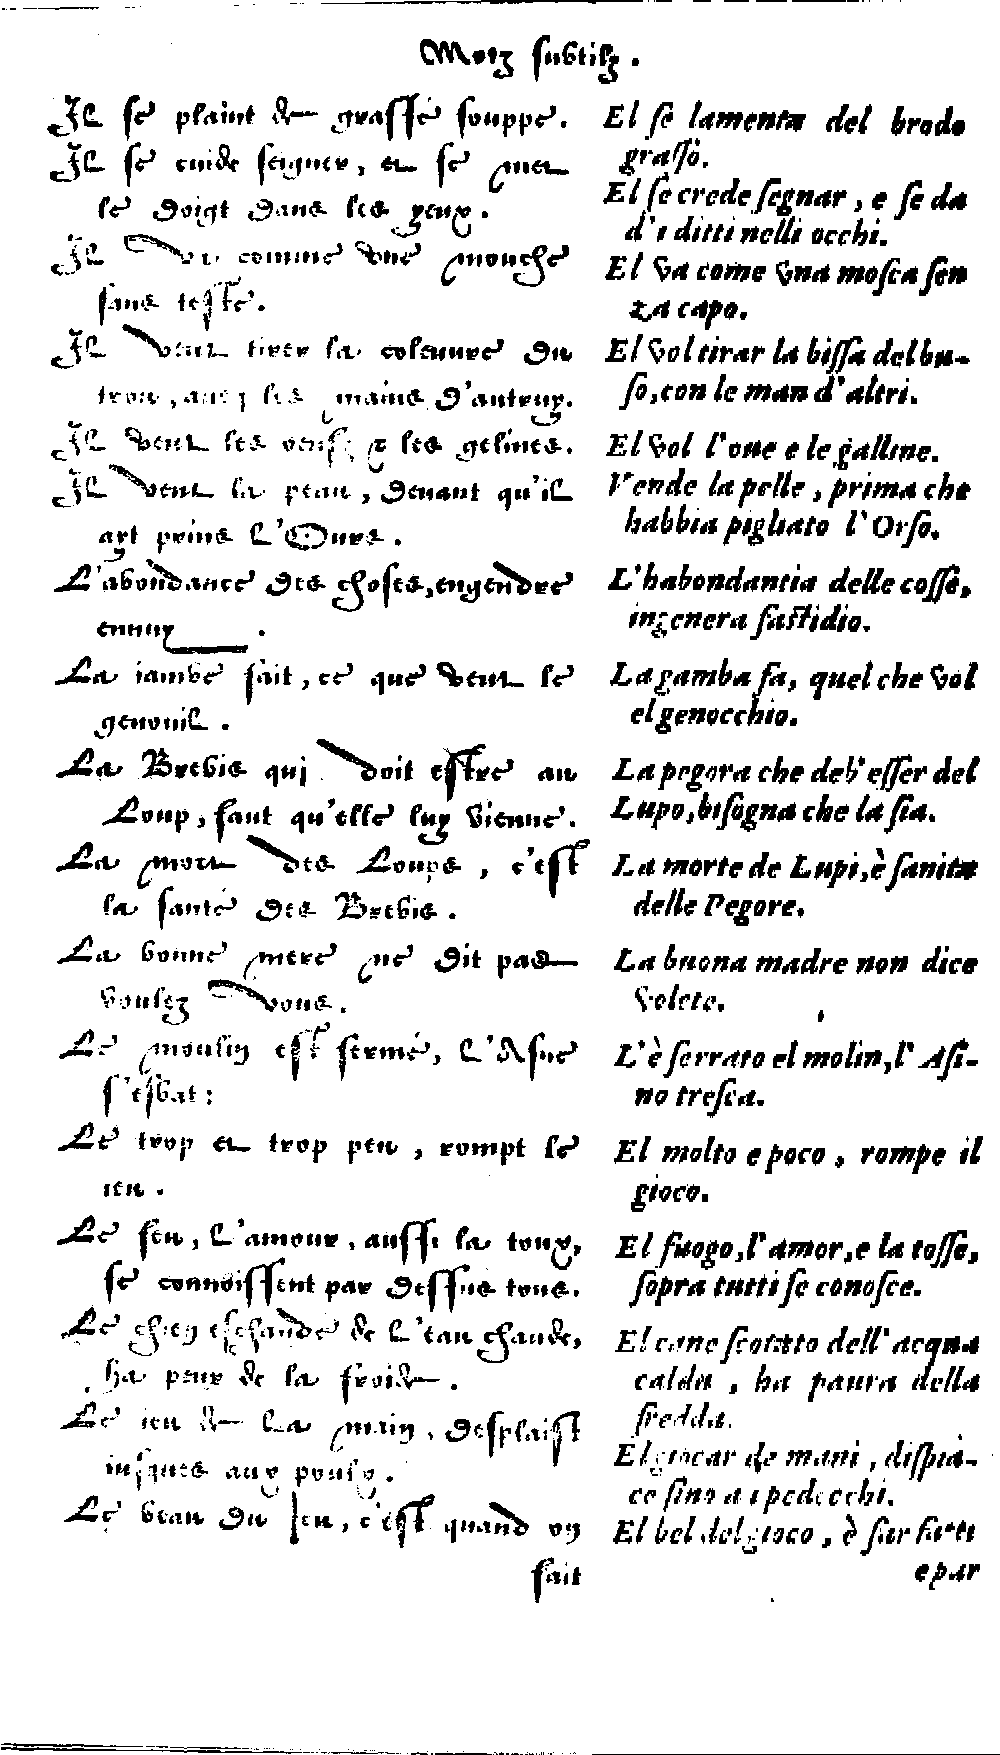 Motz subtilz.
Il se plaint de grasse souppe.
Il se cuide seigner, et se met
le doigt dans les yeux.
Il va comme une mouche
sans teste.
Il veut tirer la coleuvre du
trou, avec les mains d'autruy.
Il veut les oeufz & les gelines.
Il vent la peau, devant qu'il
ayt prins l'Ours.
L'abondance des choses, engendre
ennuy.
La iambe fait, ce que veut le
genouil.
La Brebis qui doit estre au
Loup, faut qu'elle luy vienne.
La mort des Loups, c'est
la santé des Brebis.
La bonne mere ne dit pas
voulez vous.
Le moulin est fermé, l'Asne
s'esbat:
Le trop et trop peu, rompt le
ieu.
Le feu, l'amour, aussi la toux,
se connoissent par dessus tous.
Le chien eschaudé de l'eau chaude,
ha peur de la froide.
Le ieu de la main, desplaist
iusques aux poulz.
Le beau du Ieu, c'est quand on
fait
El se lamenta del brodo
grasso.
El se crede segnar, e se da
d'i ditti nelli occhi.
El va come vna mosca sen
za capo.
El vol tirar la bissa del bu-
so, con le man d'altri.
El vol l'oue e le galline.
Vende la pelle, prima che
habbia pigliato l'Orso.
L'habondantia delle cosse,
ingenera fastidio.
La gamba fa, quel che vol
el genocchio.
La pegora che deb'esser del
Lupo, bisogna che la sia.
La morte de Lupi, è sanita
delle Pegore.
La buona madre non dice
volete.
L'è serrato el molin, l'Asi-
no tresca.
El molto e poco, rompe il
gioco.
El fuogo, l'amor, e la tosse,
sopra tutti se conosce.
El cane scottato dell'acqua
calda, ha paura della
fredda.
El giocar de mani, dispia-
ce sino a i pedocchi.
El bel del gioco, è far fatti
e par